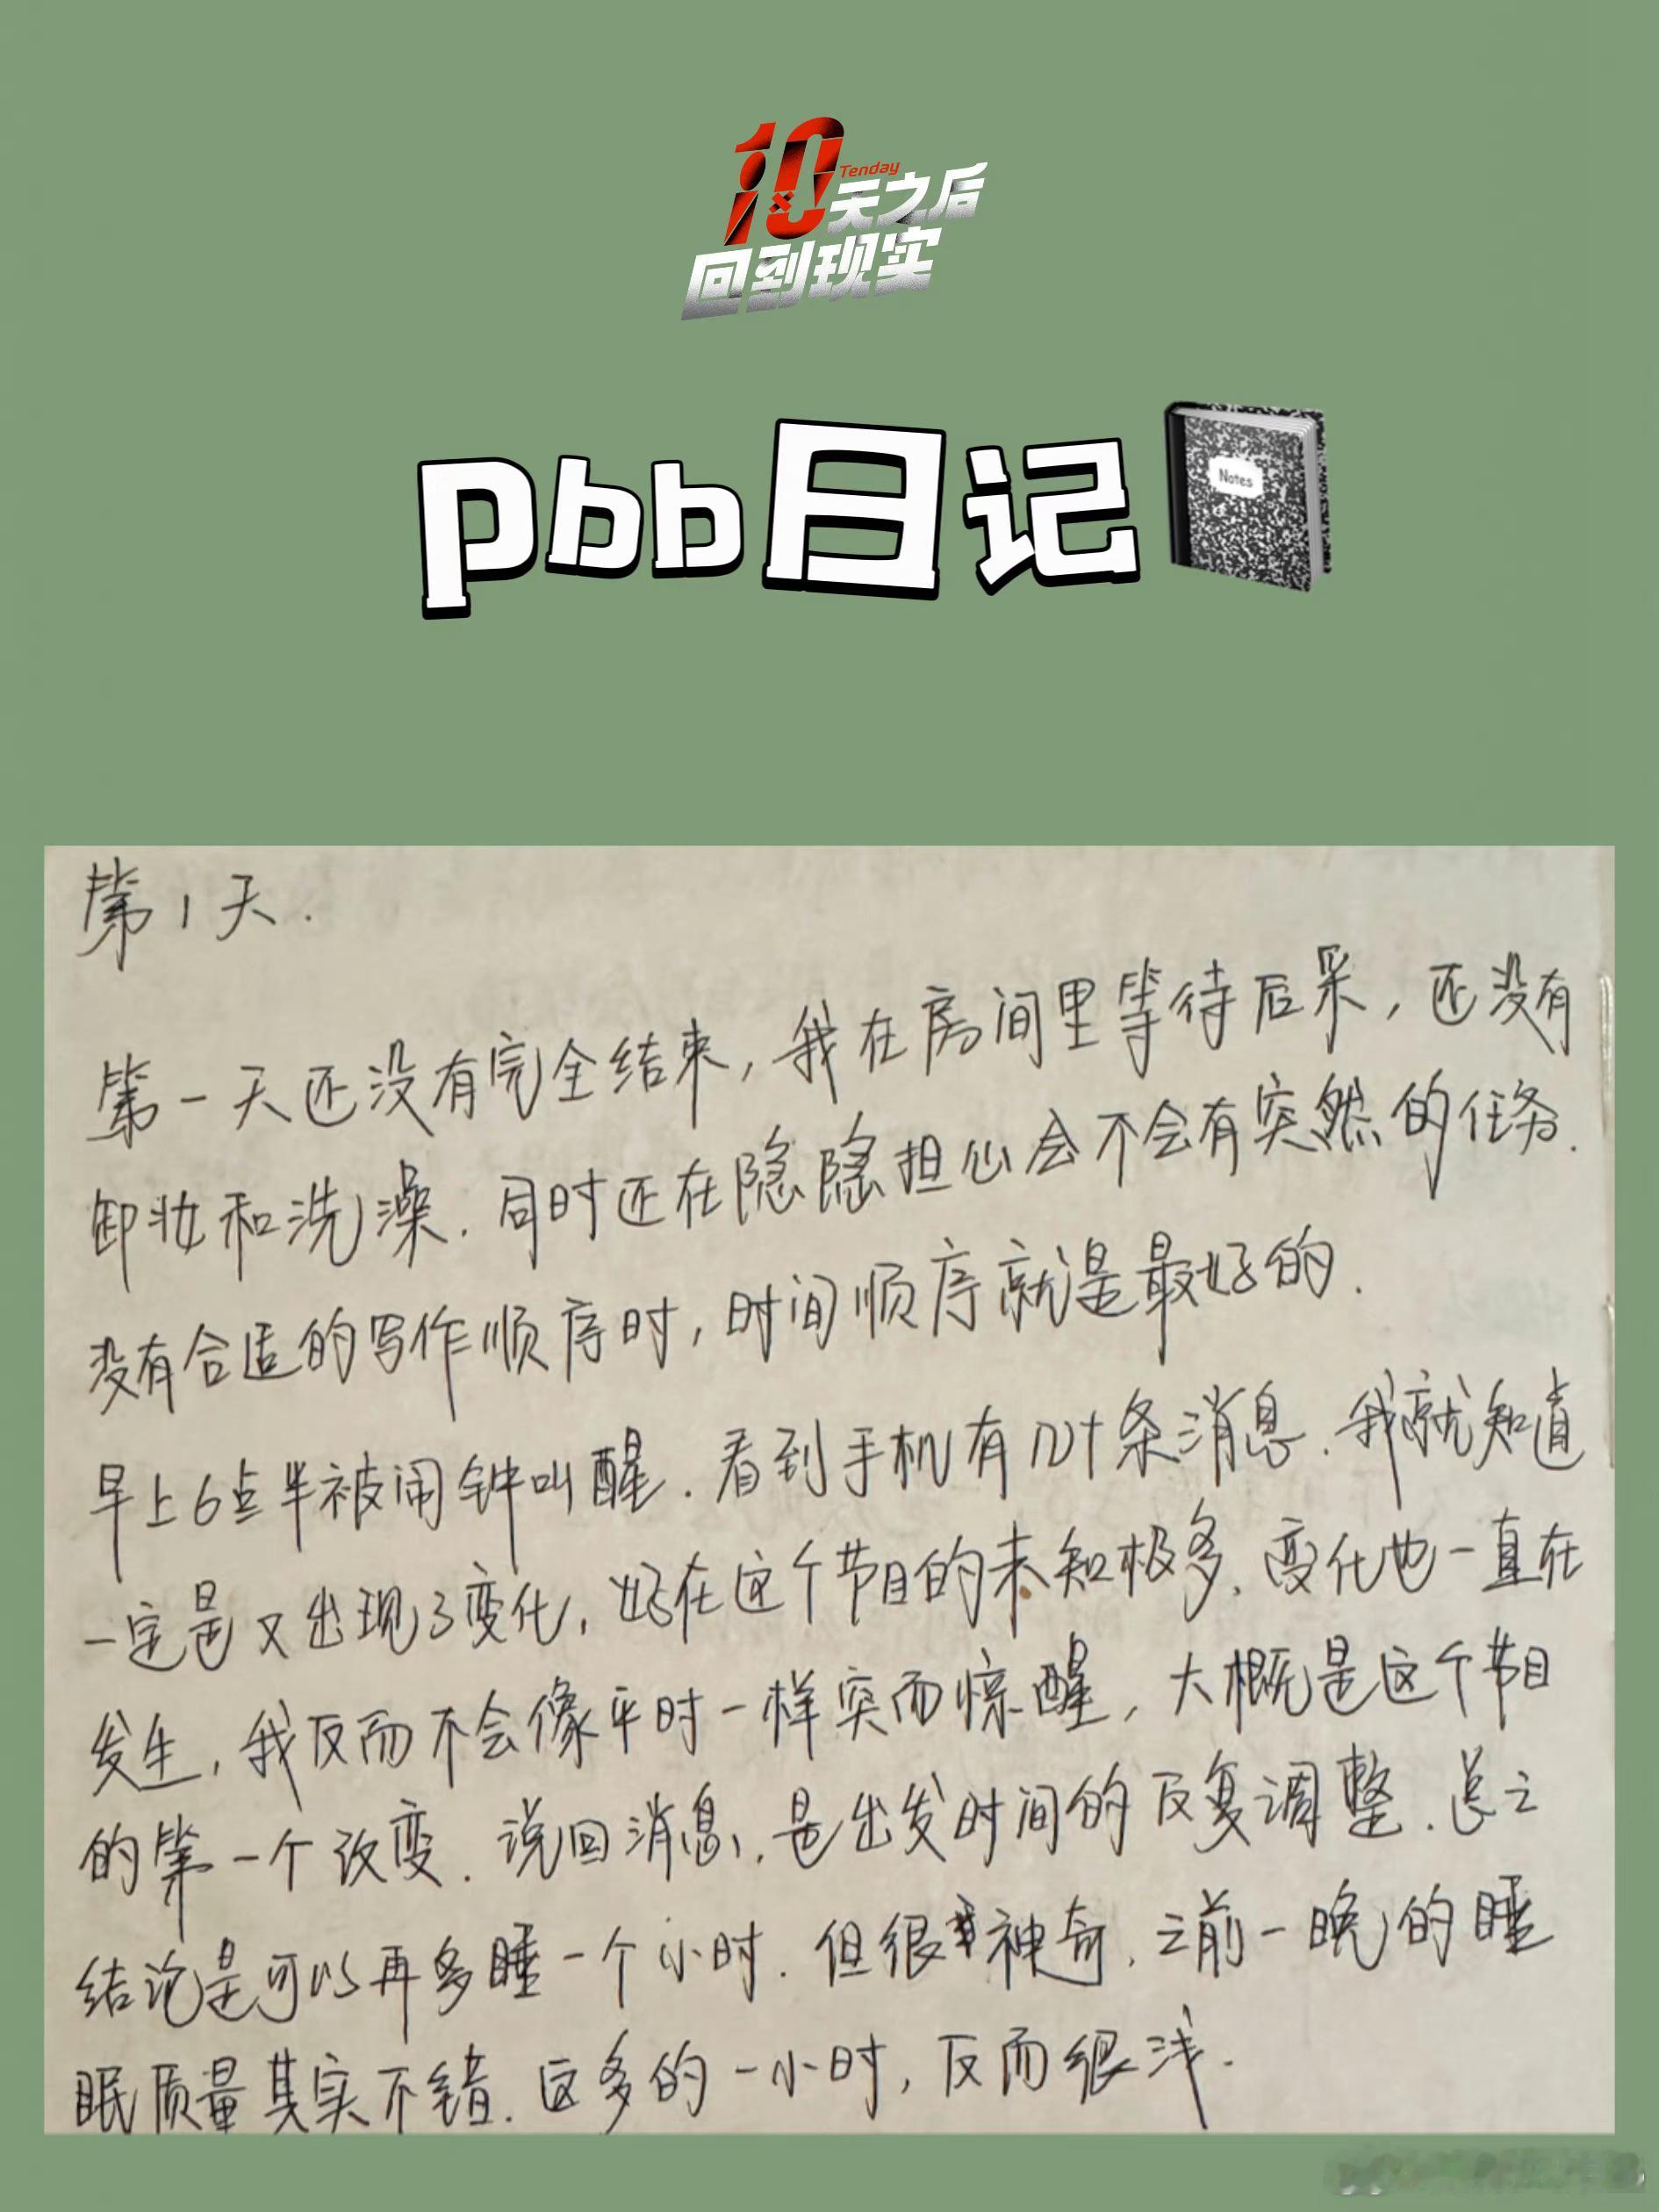 10
Tenday
天之后
回到现实
pbb日记
Notes
第1天.
第一天还没有完全结束,我在房间里等待后采,还没有
卸妆和洗澡.同时还在隐隐担心会不会有突然的任务.
没有合适的写作顺序时,时间顺序就是最好的.
早上6点半被闹钟叫醒.看到手机有几十条消息.我就知道
一定是又出现了变化,好在这个节目的未知极多、变化也一直在
发生,我反而不会像平时一样突而惊醒,大概是这个节目
的第一个改变.说回消息,是出发时间的反复调整.总之
结论是可以再多睡一个小时.但很神奇.之前一晚的睡
眠质量其实不错.这多的一小时,反而很浅.